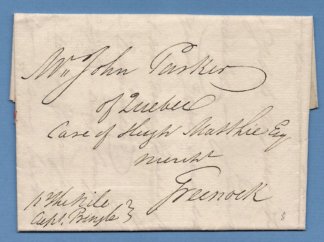 Mr. John Parker
of Quebec
Care of Hugh Matthie Esq
mercht
Greenock
Pr The Nile
Capt. Bingle